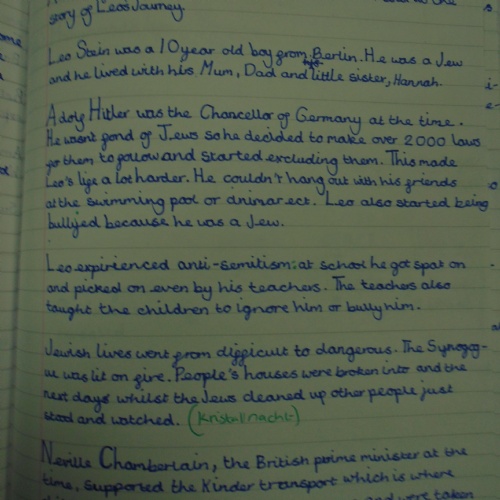 story of Leo's Journey.
Leo Stein was a 10 year old boy from Berlin. He was a Jew
and he lived with his Mum, Dad and his little sister, Hannah.
Adolf Hitler was the Chancellor of Germany at the time.
He wasnt fond of Jews so he decided to make over 2000 laws
for them to follow and started excluding them. This made
Leo's life a lot harder. He couldn't hang out with his friends
at the swimming pool or cinima ect. Leo also started being
bullyed because he was a Jew.
Leo expirienced anti-semitism: at school he got spat on
and picked on even by his teachers. The teachers also
taught the children to ignore him or bully him.
Jewish lives went from difficult to dangerous. The Synogog-
ue was lit on fire. People's houses were broken into and the
next days whilst the Jews cleaned up other people just
stood and watched. (Kristalnacht)
Neville Chamberlain, the British prime minister at the
time, supported the Kinder transport which is where
were taken